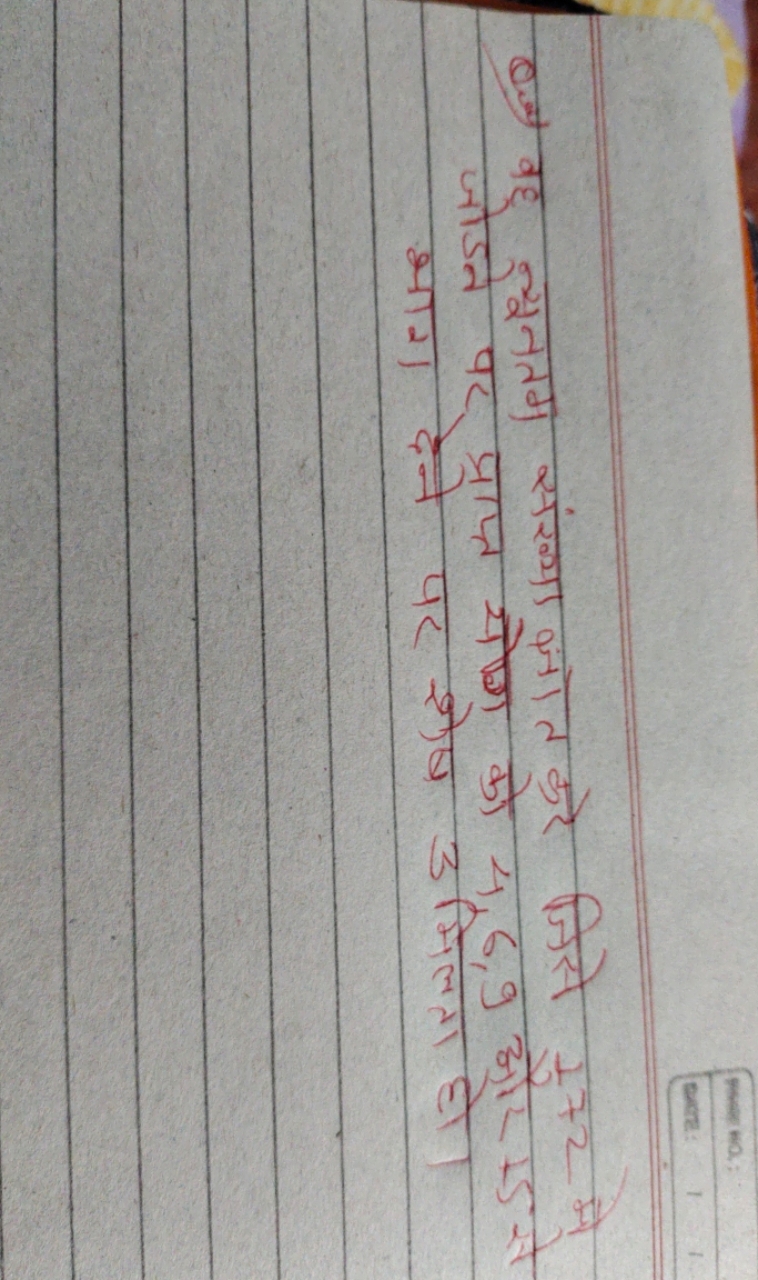 Ques वह न्यूनतम संख्या ज्ञात करे जिसे 172 मे
जोडने पर प्राप्त योग को 4, 6, 9 और 15 से
भाग देने पर शेष 3 मिलता हो।
PAGE NO.:
DATE: / /